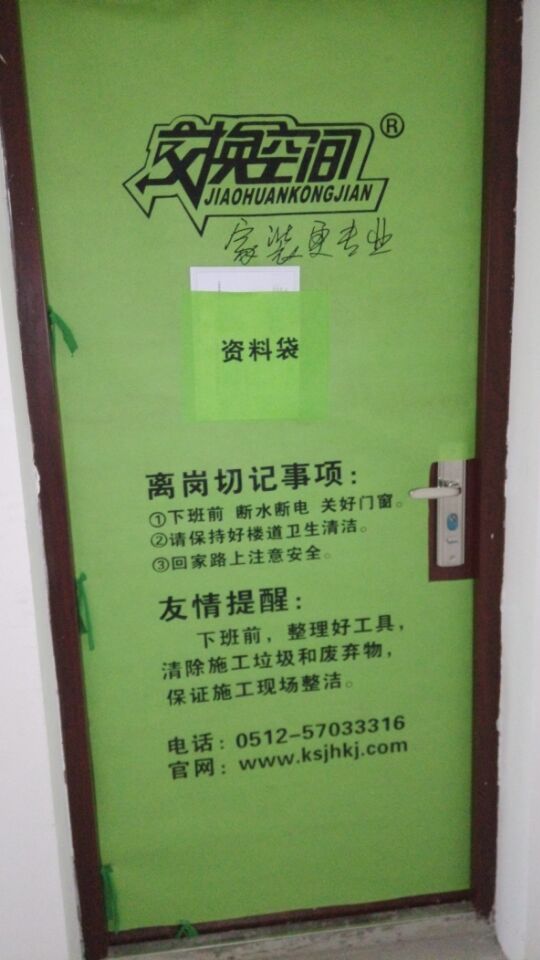 交换空间®
JIAOHUANKONGJIAN
家装更专业
资料袋
离岗切记事项：
①下班前 断水断电 关好门窗。
②请保持好楼道卫生清洁。
③回家路上注意安全。
友情提醒：
下班前，整理好工具，
清除施工垃圾和废弃物，
保证施工现场整洁。
电话：0512-57033316
官网：www.ksjhkj.com